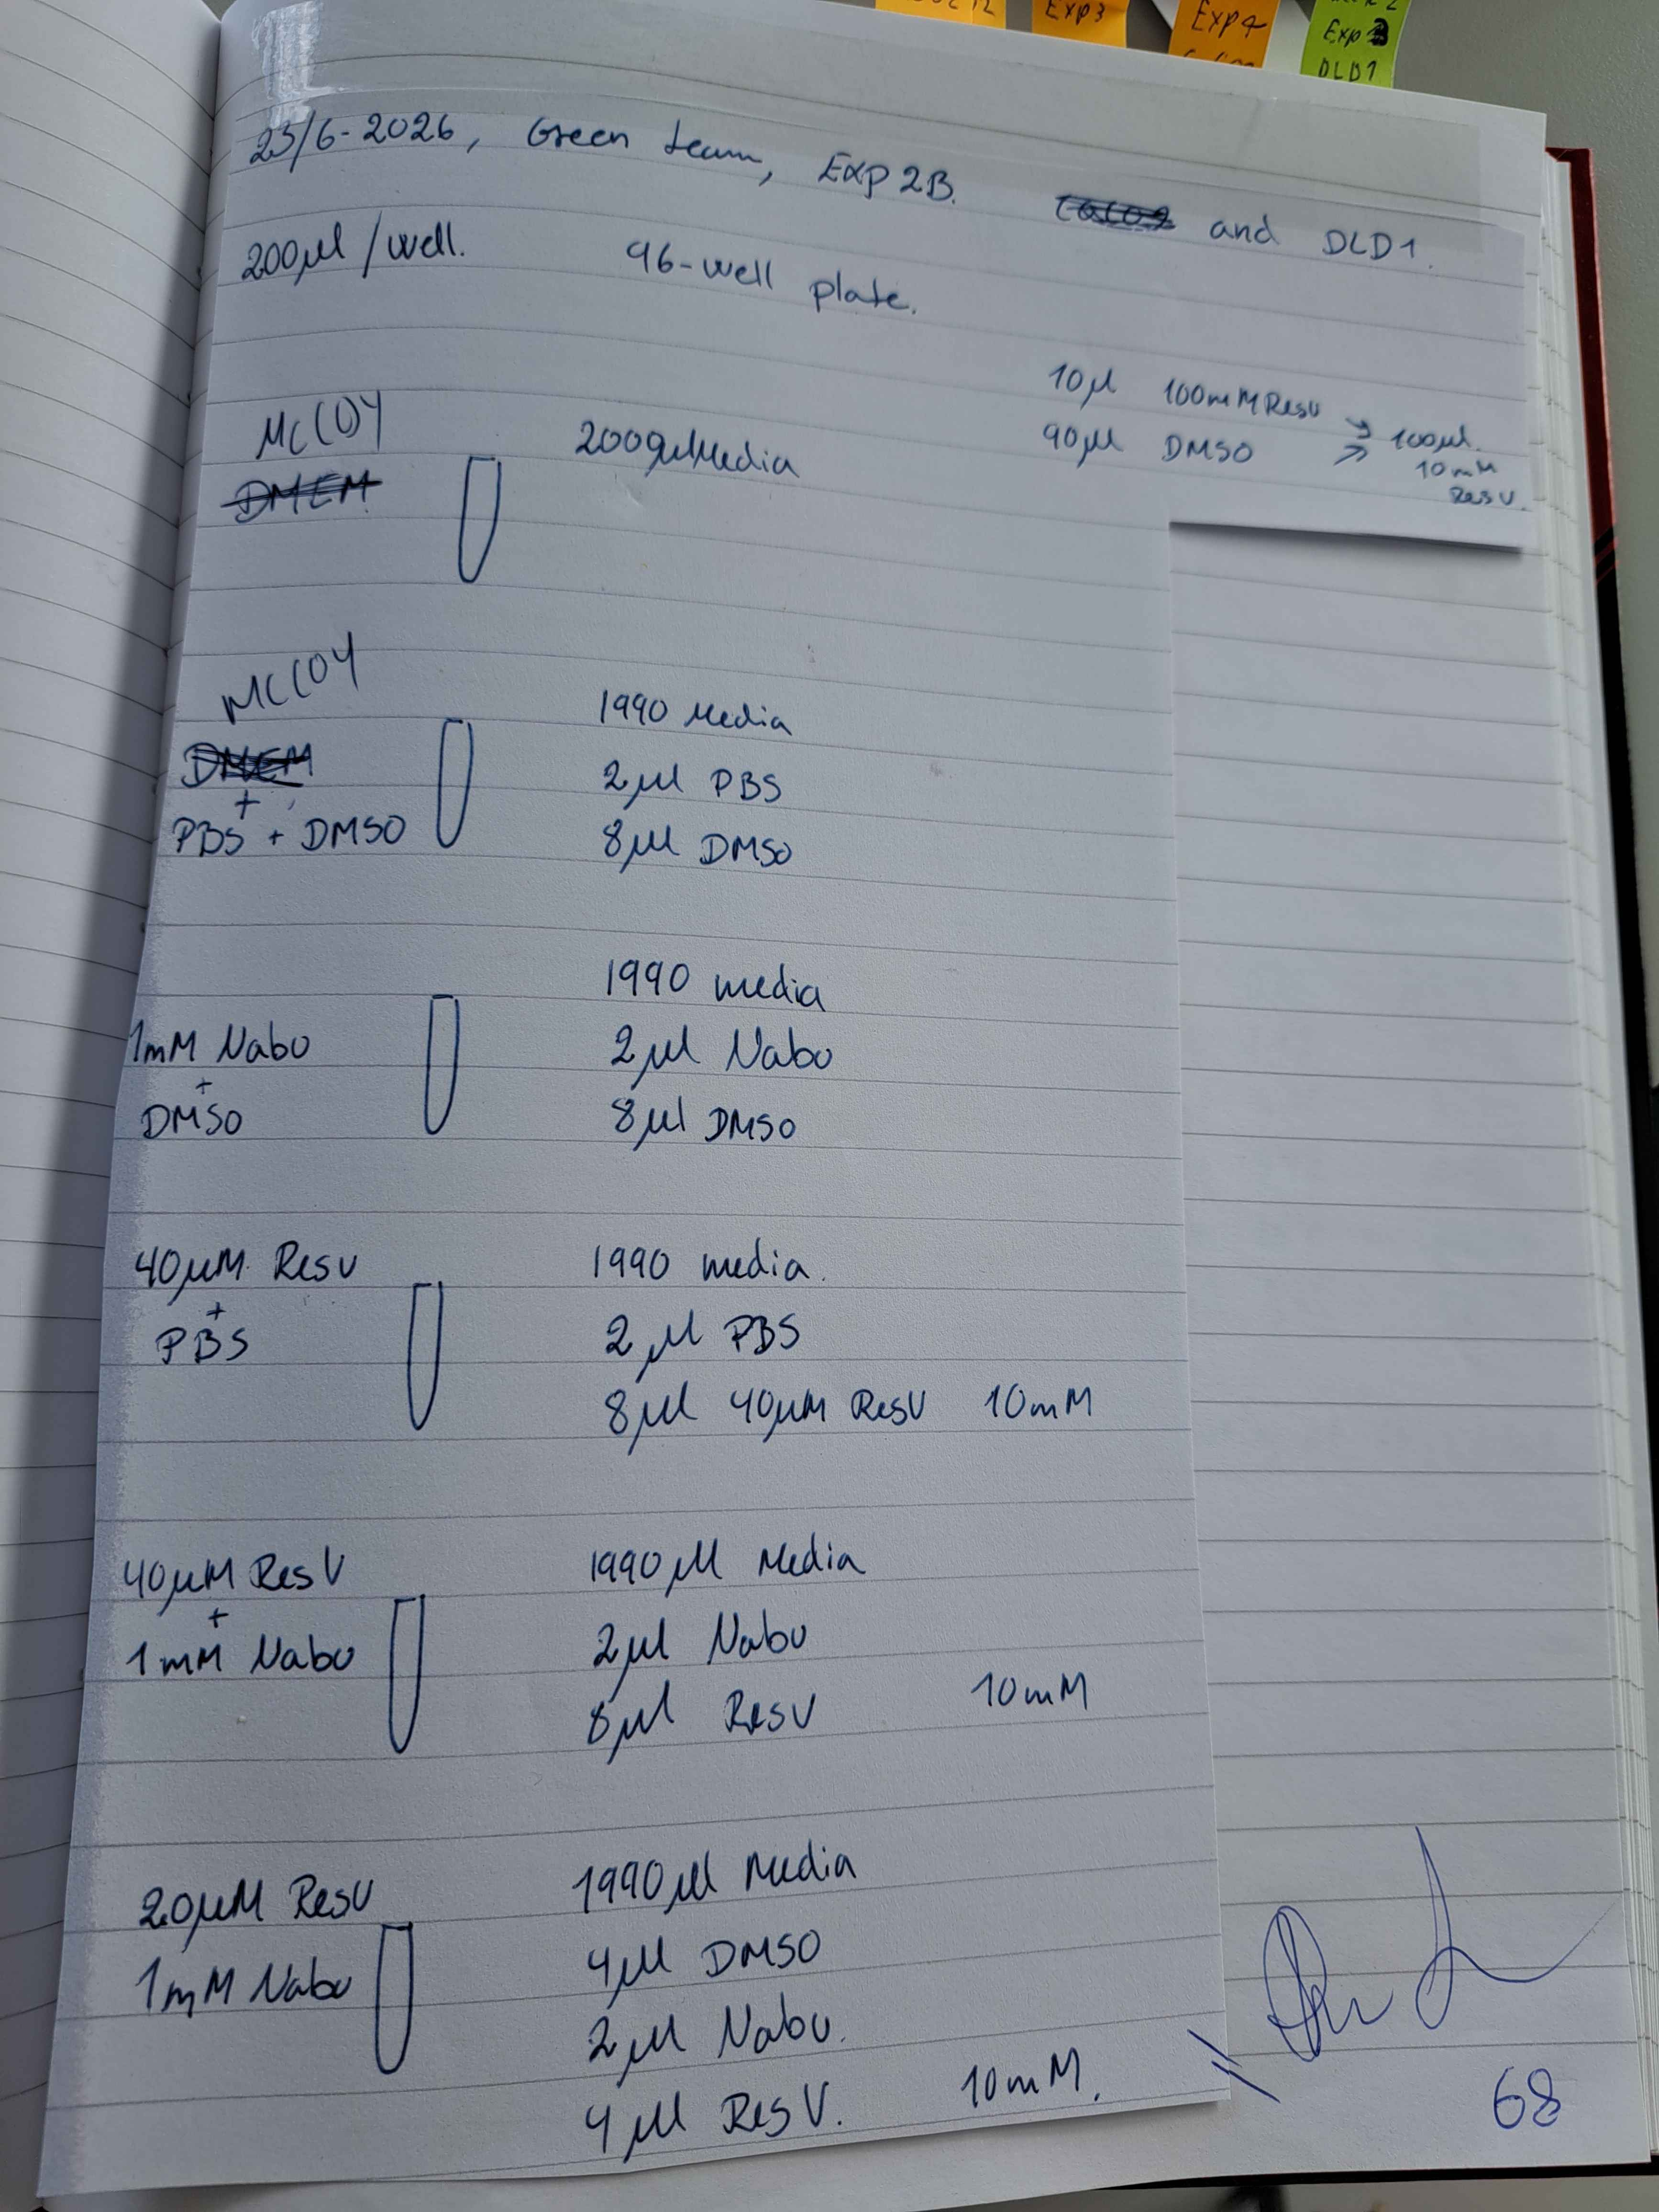 Exp3
Exp4
Exp 3
DLD1
23/6-2026, Green team, Exp 2B. and DLD1.
200µl/well. 96-well plate.
10µl 100mM Resv
90µl DMSO
100µl.
10mM
Resv.
MCCOY
DMEM
Media
MCCOY
DMEM
+
PBS + DMSO
1990 Media
2µl PBS
8µl DMSO
1mM Nabu
+
DMSO
1990 media
2µl Nabu
8µl DMSO
40µM Resv
+
PBS
1990 media.
2µl PBS
8µl 40µM ResV 10mM
40µM ResV
+
1mM Nabu
1990µl Media
2µl Nabu
8µl ResV 10mM
20µM ResV
1mM Nabu
1990µl Media
4µl DMSO
2µl Nabu.
4µl ResV. 10mM.
68